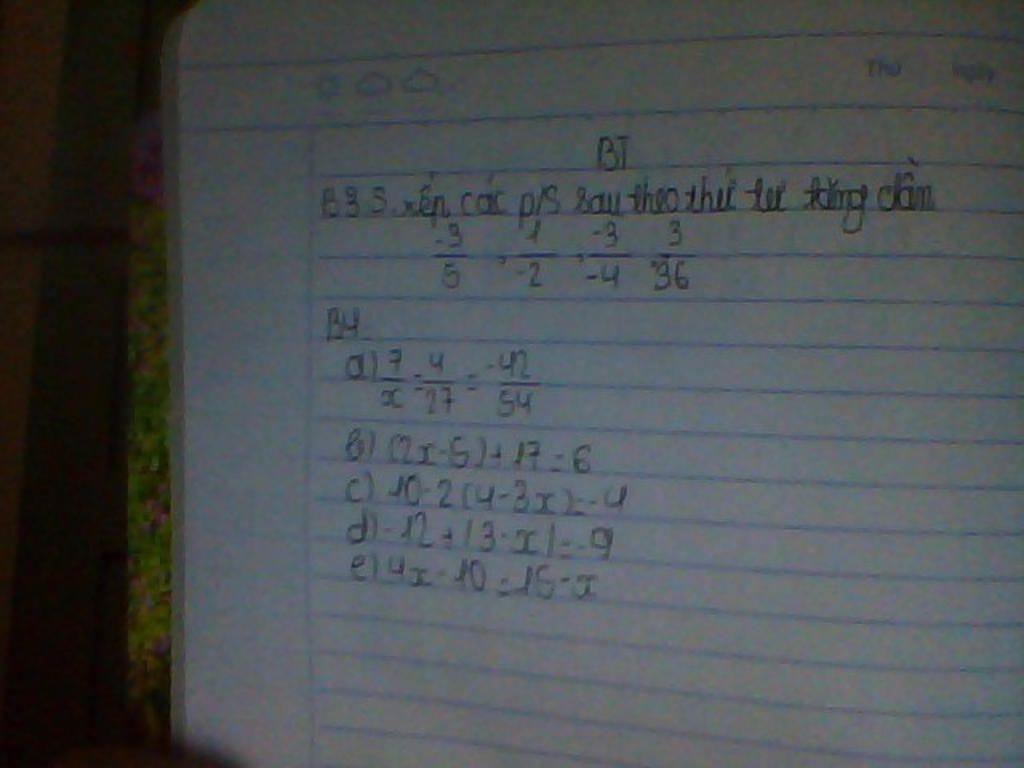 Thứ Ngày
BT
B3 S. xếp các p/s sau theo thứ tự tăng dần
-3/5, 1/-2, -3/-4, 3/36
B4
a) 7/x = 4/27 = -42/54
b) (2x-5)+17=6
c) 10-2(4-3x)=-4
d) -12+|3-x|=-9
e) 4x-10=15-x